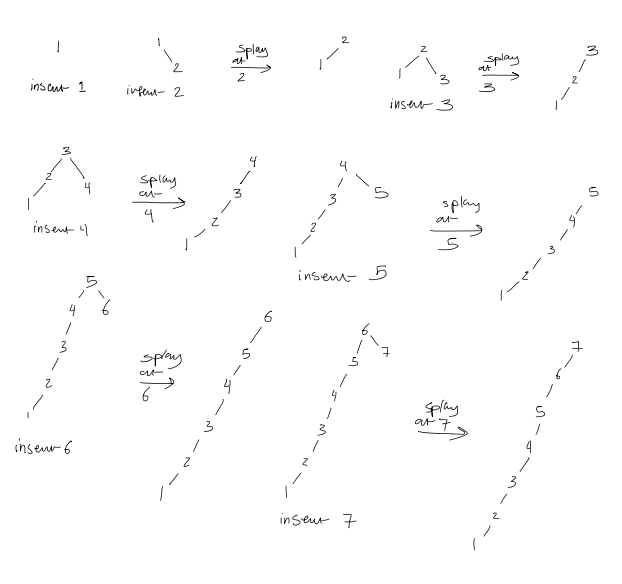 1
insert 1
1
2
insert 2
splay
at
2
2
1
2
1
3
insert 3
splay
at
3
3
2
1
3
2
4
1
insert 4
splay
at
4
4
3
2
1
4
3
5
2
1
insert 5
splay
at
5
5
4
3
2
1
5
4
6
3
2
1
insert 6
splay
at
6
6
5
4
3
2
1
6
7
5
4
3
2
1
insert 7
splay
at 7
7
6
5
4
3
2
1